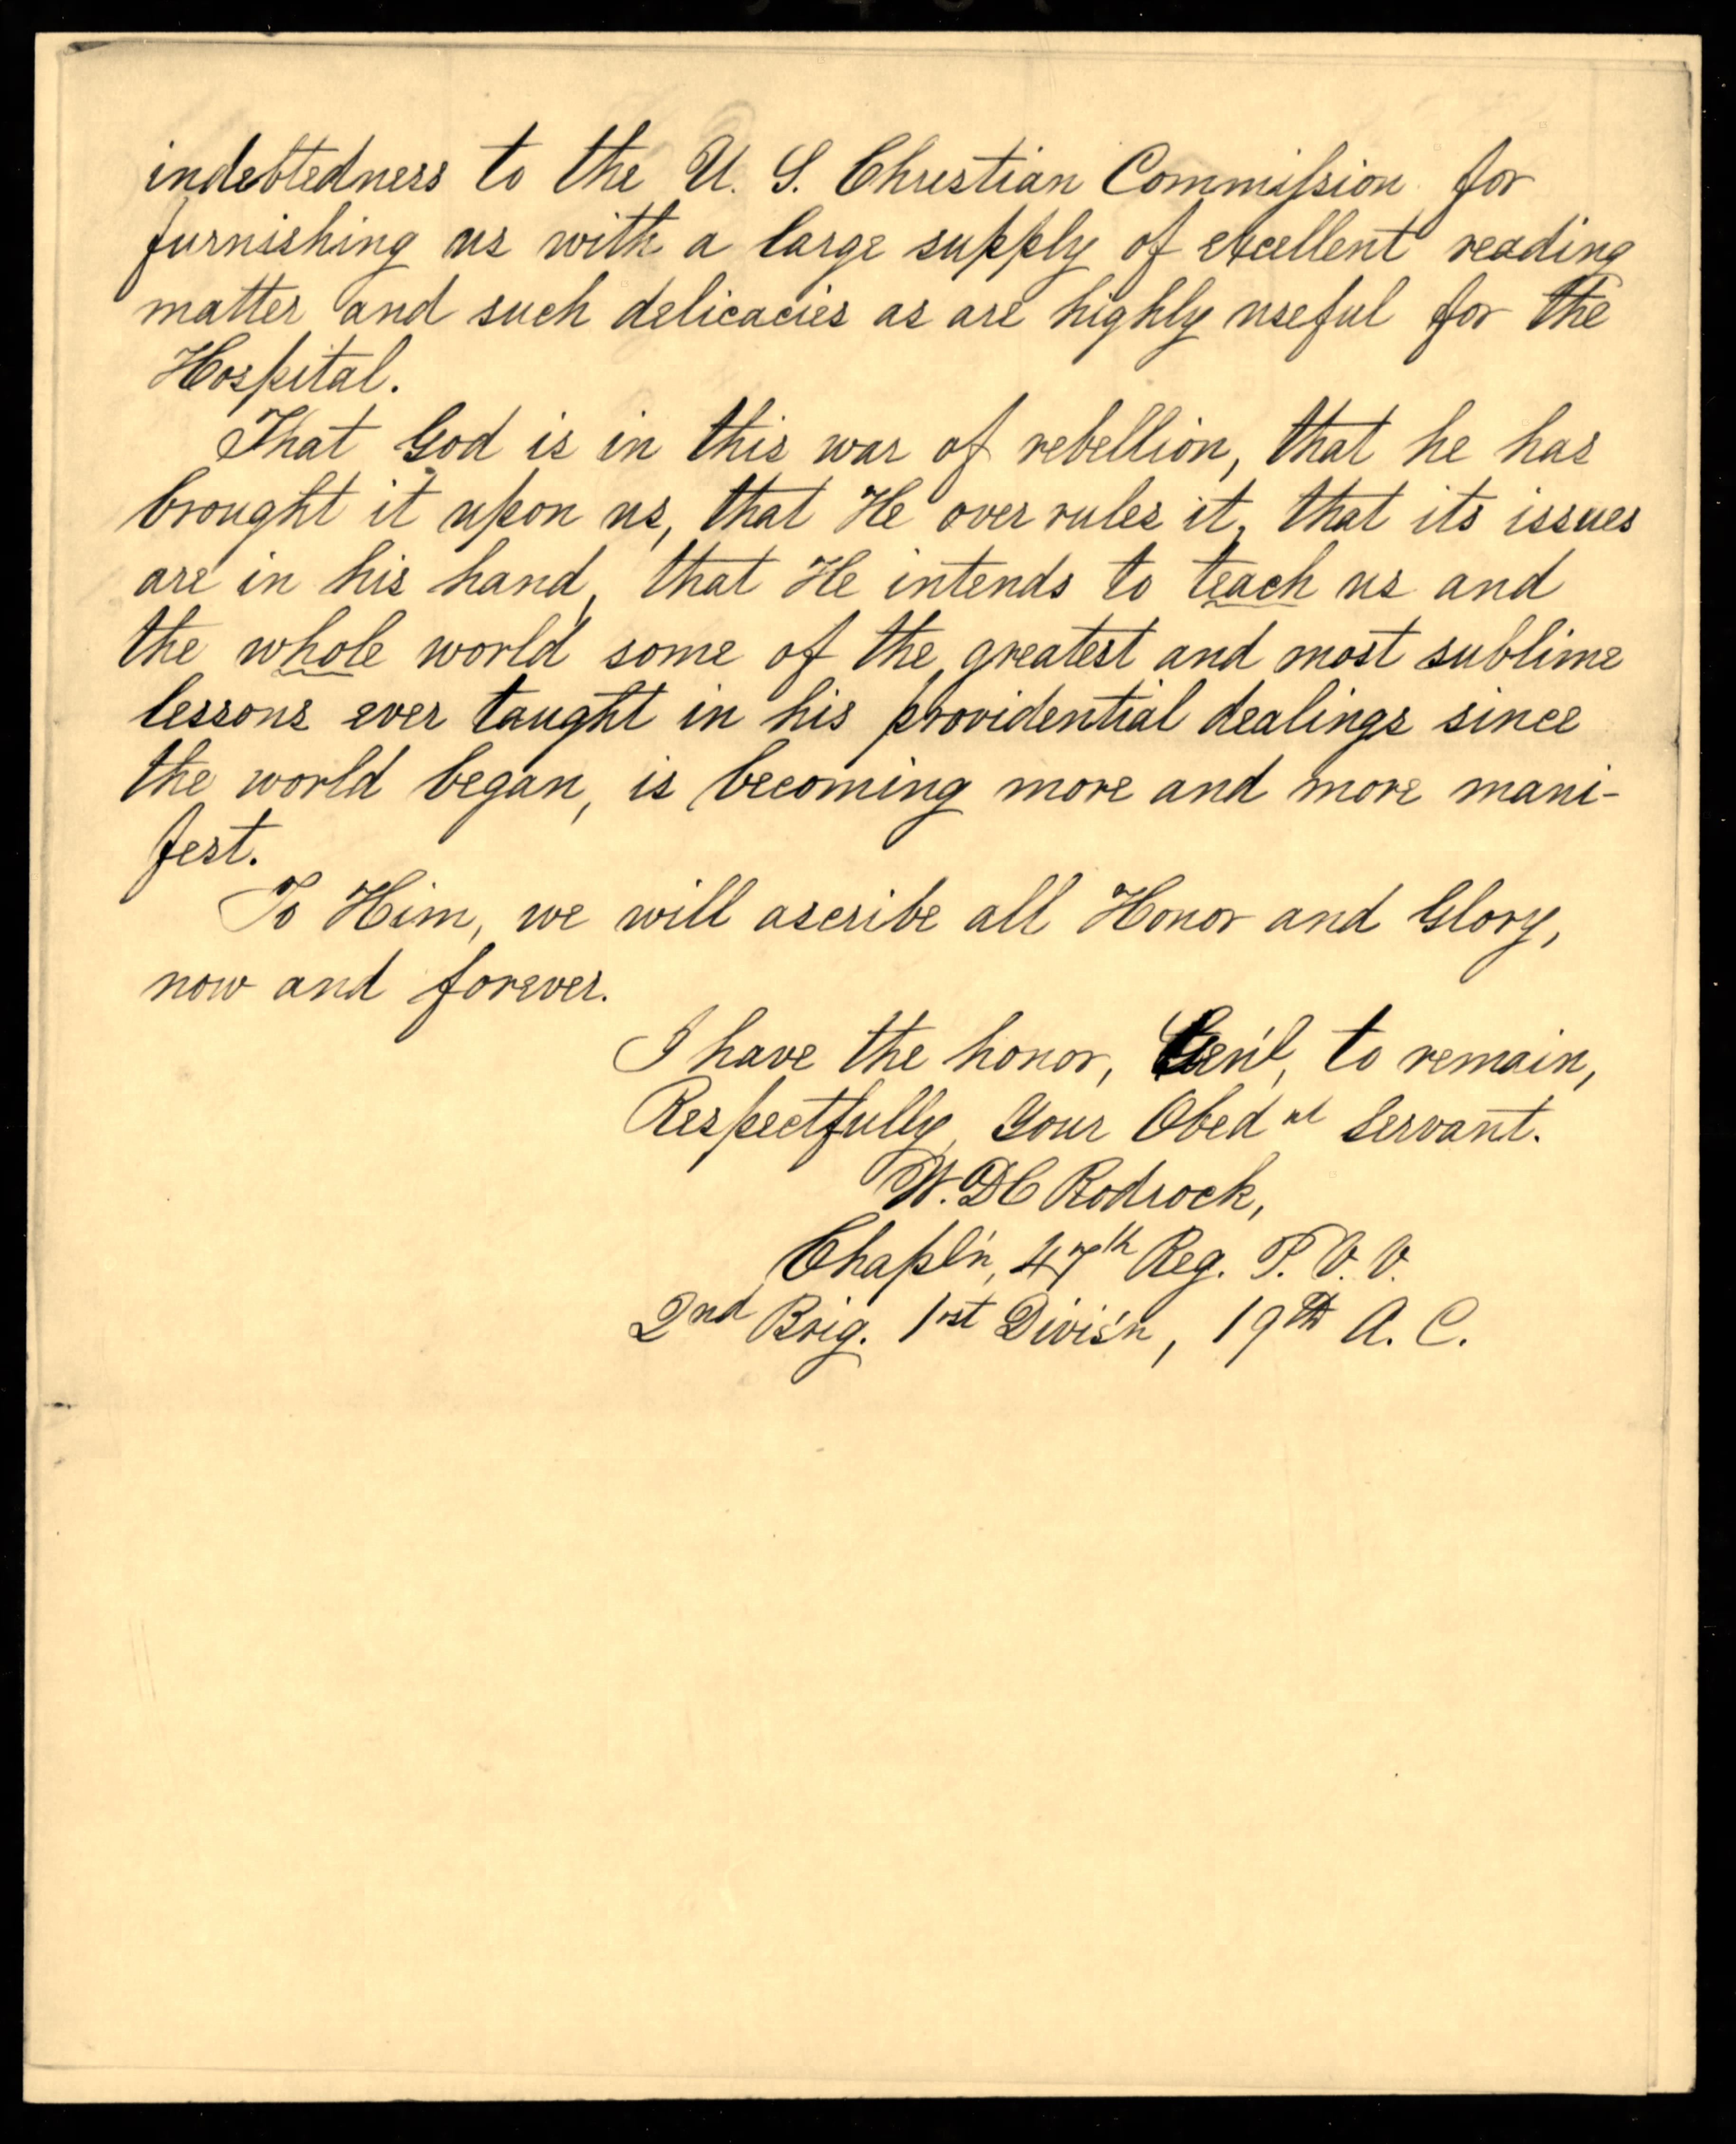 indebtedness to the U. S. Christian Commission for
furnishing us with a large supply of excellent reading
matter and such delicacies as are highly useful for the
Hospital.
That God is in this war of rebellion, that he has
brought it upon us, that He over rules it, that its issues
are in his hand, that He intends to teach us and
the whole world some of the greatest and most sublime
lessons ever taught in his providential dealings since
the world began, is becoming more and more mani-
fest.
To Him, we will ascribe all Honor and Glory,
now and forever.
I have the honor, Gen'l, to remain,
Respectfully, your Obed nt Servant.
W. DC Rodrock,
Chapl'n, 47th Reg. P. V. V.
2nd Brig. 1rst Divis'n, 19th A. C.